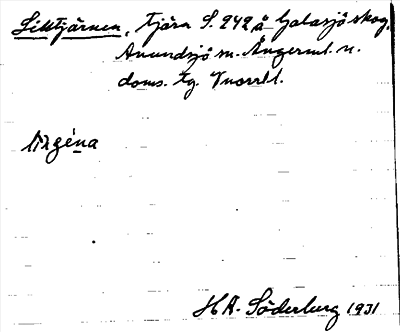 Siktjärnen, tjärn S. 242 å Galasjö skog,
Anundsjö sn. Ångerml. n.
doms. tg. Vnorrl.
H.A. Söderberg 1931